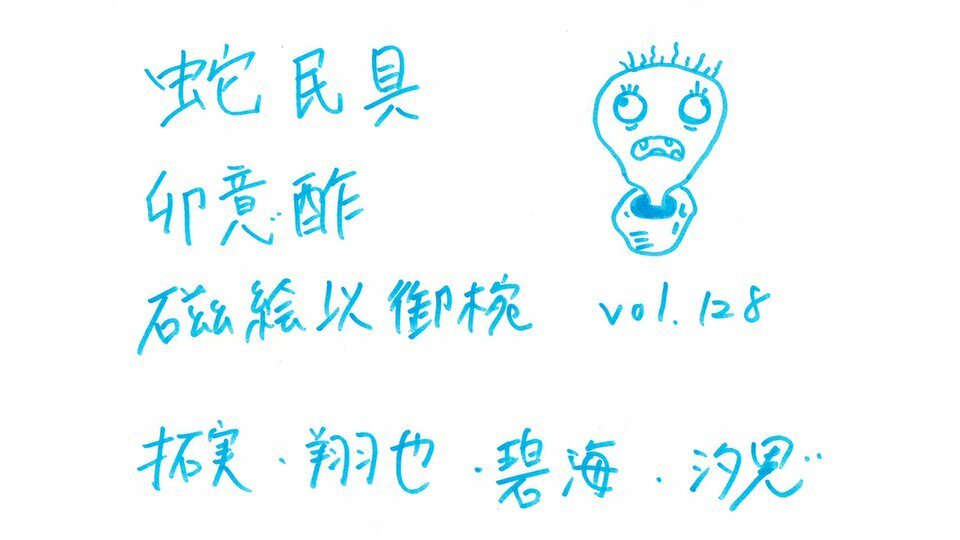 蛇民具
卯意酢
磁絵以御椀 vol.128
拓実・翔也・碧海・汐恩